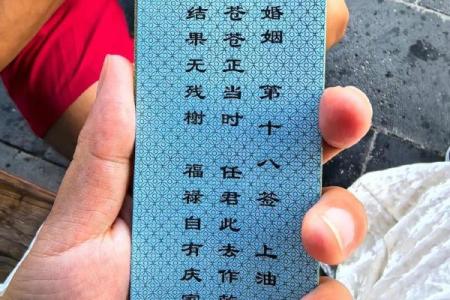 婚姻 第十八签 上油
苍苍正当时 任君此去作
结果无残榭 福禄自有庆